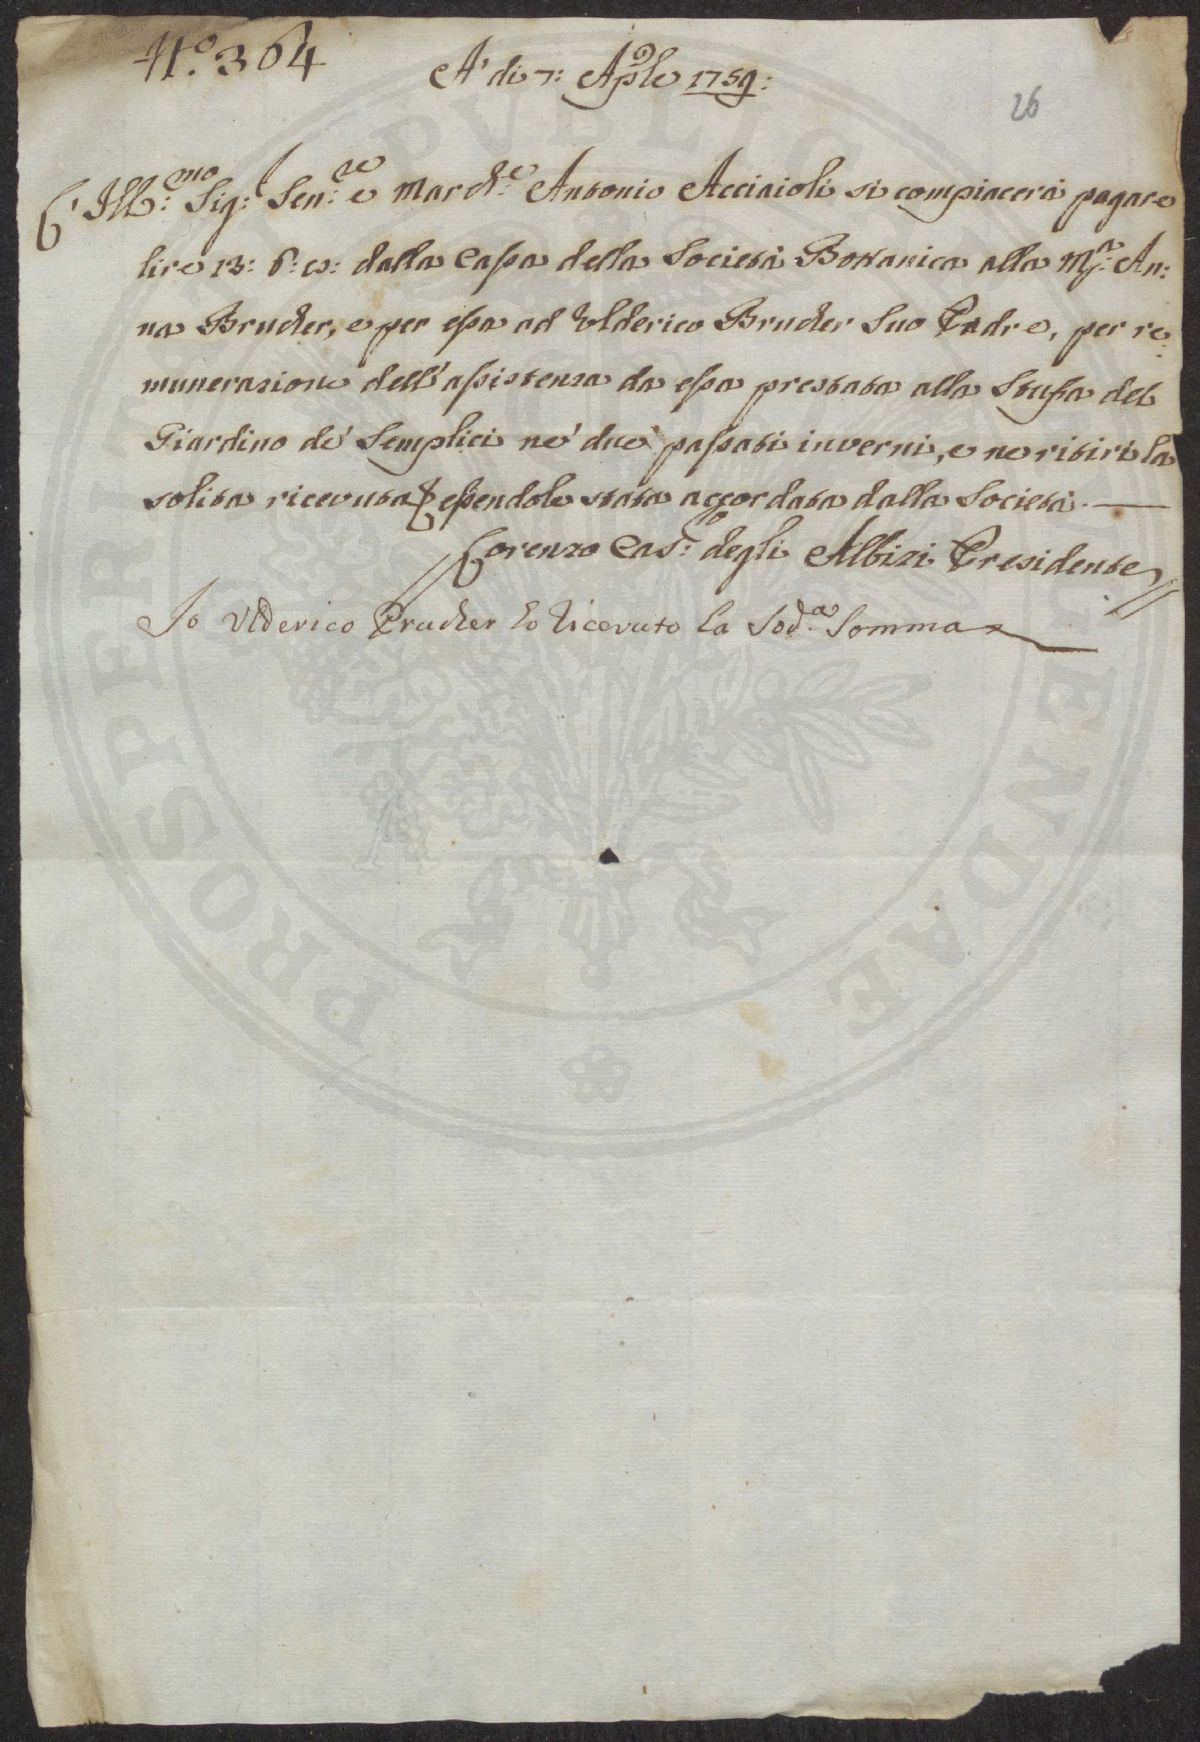 N.º 364
A' di 7: Aple 1759:
26
Ill:mo Sig: Sen:re e March:e Antonio Acciaioli si compiacerà pagare
lire 13: 6: 8: dalla Cassa della Società Bottanica alla M:ª An:
na Bruder, e per essa ad Ulderico Bruder Suo Padre, per re:
munerazione dell'assistenza da essa prestata alla Stufa del
Giardino de' Semplici ne' due passati inverni, e ne ritiri la
solita ricevuta essendole stata accordata dalla Società.
Lorenzo Gas:ro degli Albizi Presidente
Io Ulderico Pruder ho Ricevuto la Sod.ª Somma
PROSPERITATI PVBLICAE AVGENDAE